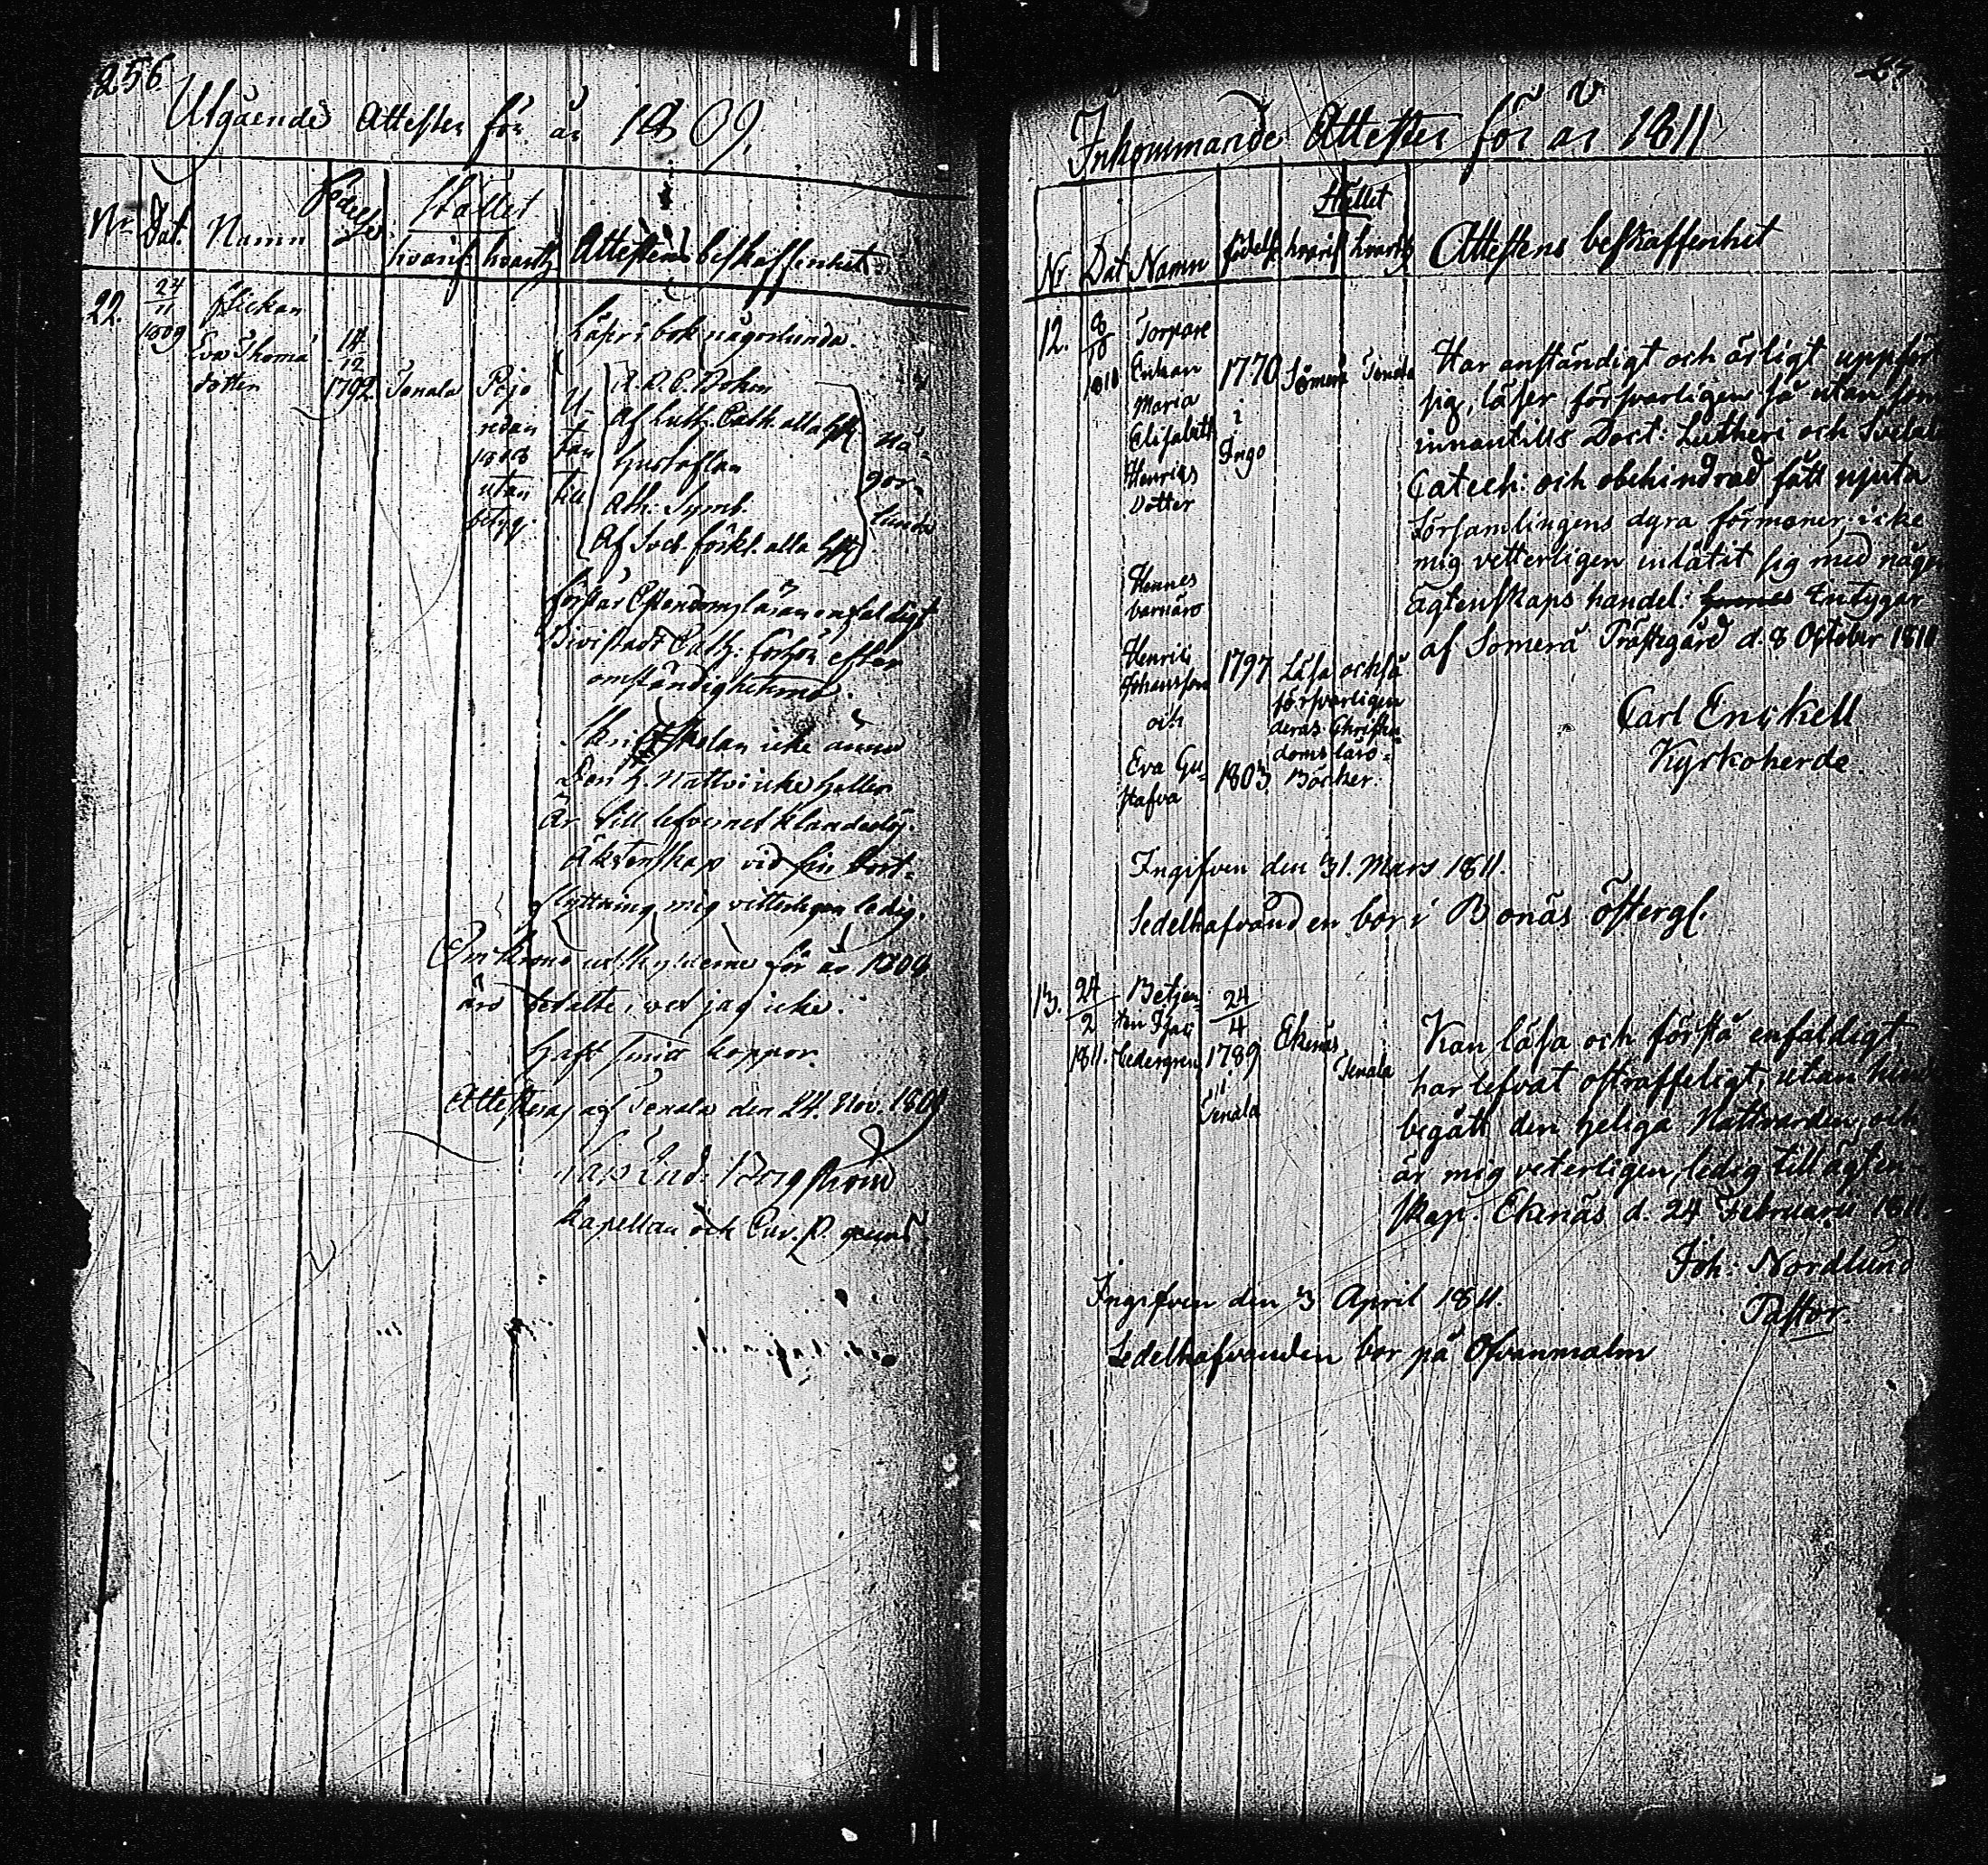 256.
Utgående Attester för år 1809.
Nr. Dat. Namn Födelse Stället
hvarif. hvartil Attestens beskaffenhet.
22. 24/11 1809 flickan
Eva Thoma
dotter
14/12 1792 Tenala Pojo
sedan
1808
utan
betyg.
Läser i bok någorlunda.
U
tan
till
A. B. C. Boken
Af Luth. Cath. alla
Hustaflan
Ath. Symb.
Af Sved. förkl. alla
Nå-
gor-
lunda
förstår Christendomsläran enfaldigt
Bivistadt Cath: förhör efter
omständigheterna.
Skriftskolan icke ännu
Den H. Nattv. icke heller
Är till lefvernet klanderlös.
Äktenskap vid sin bort-
flyttning mig vitterligen ledig.
Om krono utskylderne för år 1809
äro betalte, vet jag icke.
Haft små koppor.
Attesteras af Tenala den 24. Nov. 1809
Kapellan och Cur. P.
Inkommande Attester för år 1811
Stället
Nr. Dat Namn födelse hvarif hvartil Attestens beskaffenhet
12. 8/10 1810 Torpare
Enkan
Maria
Elisabeth
Henrics
Dotter
1770
i
Ingo
Somerå Tenala
Har anständigt och ärligt uppfört
sig, läser försvarligen så utan som
innantills Doct: Lutheri och Svebeli
Catech: och obehindrad fått njuta
Församlingens dyra förmoner; icke
mig vetterligen inlåtit sig med någon
ägtenskaps handel: Intygar
af Somerå Prästegård d. 8 October 1810
Carl Enckell
Kyrkoherde.
Hennes
barn äro
Henric
Johansson
1797
och
Eva Gu-
stafva
1803
Läsa också
försvarligen
deras Christen-
doms läro-
Böcker.
Ingifven den 31. Mars 1811.
Sedelhafvanden bor i Bonäs östergl.
13. 24/2 1811. Betjen-
ten
Cedergren
24/4
1789
i
Tenala
Ekenäs Tenala
Kan läsa och förstå enfaldigt
har lefvat ostraffeligt, utan hinder
begått den heliga Nattvarden, och
är mig veterligen ledig till ägten-
skap. Ekenäs d. 24 Februarii 1811.
Joh: Nordlund
Pastor.
Ingifven den 3 April 1811.
Sedelhafvanden bor på Ofvanmalm